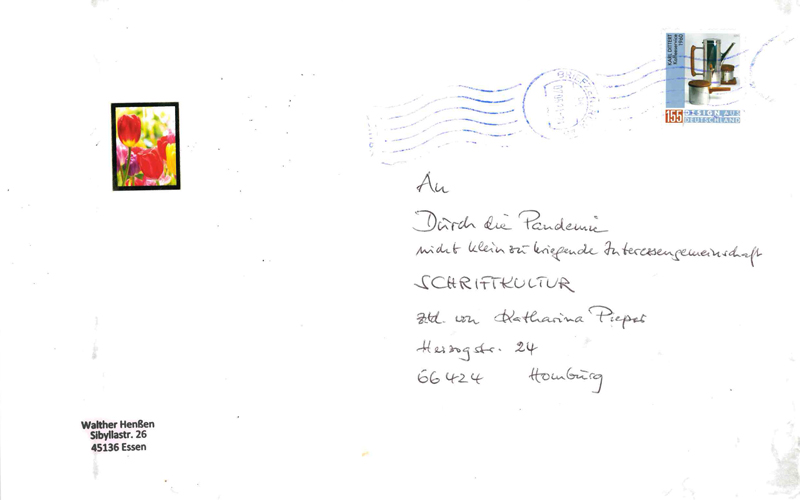 KARL DITTERT
Kaffeeservice
1960
155 DESIGN AUS
DEUTSCHLAND
An
Durch die Pandemie
nicht klein zu kriegende Interessengemeinschaft
SCHRIFTKULTUR
z.Hd. von Katharina Pieper
Herzogstr. 24
66424 Homburg
Walther Henßen
Sibyllastr. 26
45136 Essen